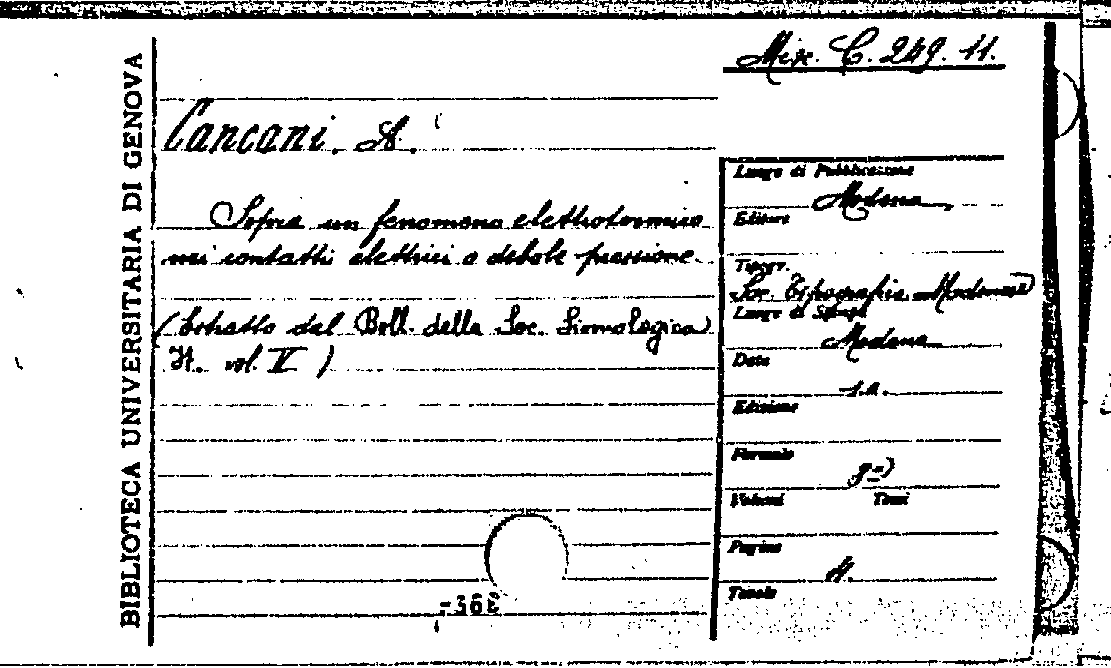 BIBLIOTECA UNIVERSITARIA DI GENOVA
Misc. C. 249. 11.
Cancani. A.
Sopra un fenomeno elettrotermico
nei contatti elettrici a debole pressione
(Estratto dal Boll. della Soc. Sismologica
It. vol. V)
Luogo di Pubblicazione
Modena
Editore
Tipogr.
Soc. Tipografica Modenese
Luogo di Stampa
Modena
Data
s.a.
Edizione
Formato
8º
Volumi Tomi
Pagine
Tavole